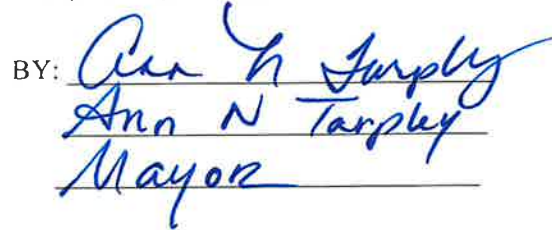 BY: Ann N Tarpley
Ann N Tarpley
Mayor